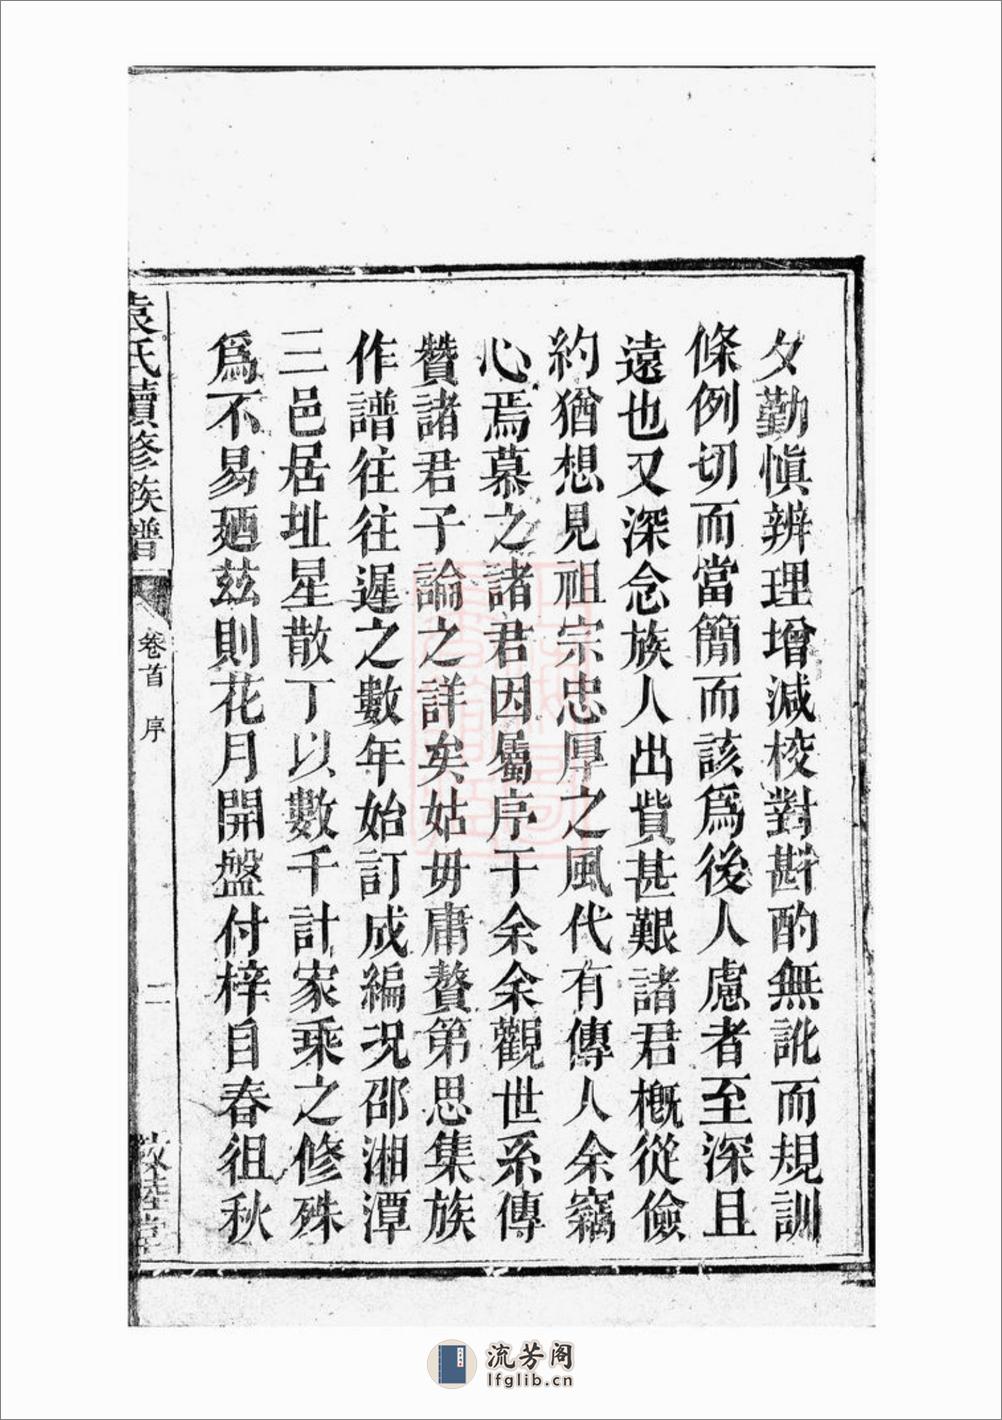 夕勤愼辨理增減校對斟酌無訛而規訓
條例切而當簡而該爲後人慮者至深且
遠也又深念族人出貲甚艱諸君槪從儉
約猶想見祖宗忠厚之風代有傳人余竊
心焉慕之諸君因屬序于余余觀世系傳
贊諸君子論之詳矣姑毋庸贅第思集族
作譜往往遲之數年始訂成編况邵湘潭
三邑居址星散丁以數千計家乘之修殊
爲不易廼茲則花月開盤付梓自春徂秋
袁氏續修族譜
卷首 序
二
敦睦堂
流芳阁
lfglib.cn